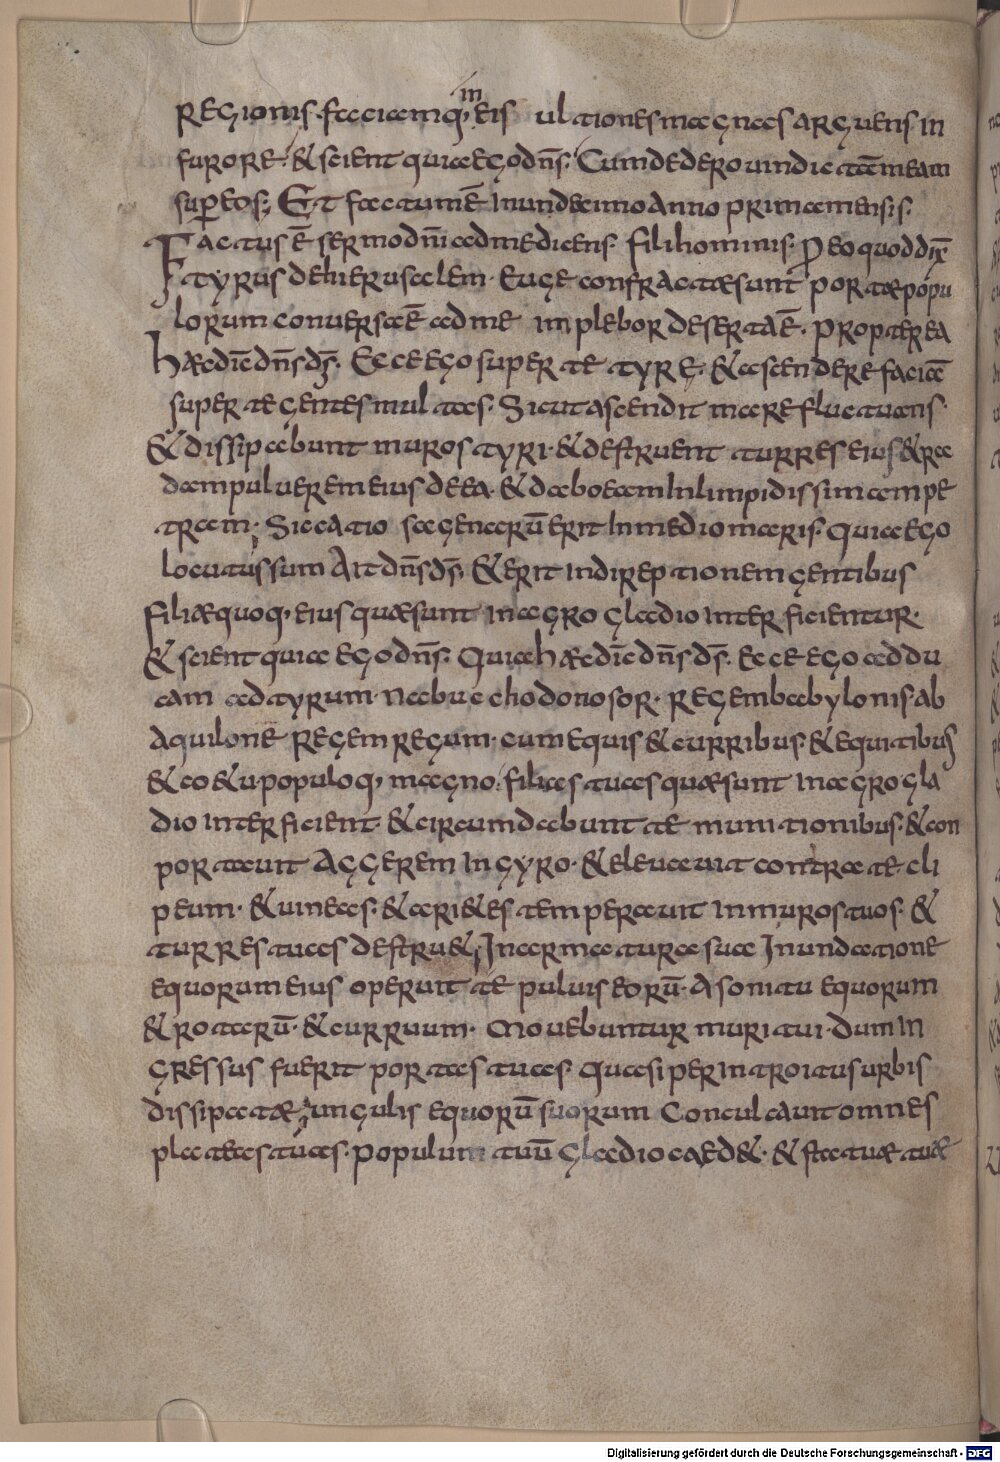 regionis. faciamq; in eis ultiones magnas arguens in
furore. & scient quia ego dn̄s. Cum dedero uindictā meam
sup eos; Et factum ē in undecimo anno prima mensis.
Factus ē sermo dn̄i ad me dicens. fili hominis. p eo quod dix̄
tyrus de hierusalem. euge confractae sunt portae popu
lorum conuersa ē ad me implebor deserta ē. propterea
haec dic̄ dn̄s ds̄. Ecce ego super te tyre. & ascendere faciā
super te gentes multas. Sicut ascendit mare fluctuans.
& dissipabunt muros tyri. & destruent turres eius & ra
dam puluerem eius de ea. & dabo eam in limpidissimam pe
tram. Siccatio sagenarū erit in medio maris. quia ego
locutus sum Ait dn̄s ds̄, & erit in direptionem gentibus
filiae quoq; eius quae sunt in agro gladio interficientur.
& scient quia ego dn̄s. Quia haec dic̄ dn̄s ds̄. Ecce ego addu
cam ad tyrum. nabuchodonosor. regem babylonis ab
aquilone regem regum. cum equis & curribus. & equitibus
& co&u populoq; magno. filias tuas quae sunt in agro gla
dio interficient. & circumdabunt te munitionibus. & con
portauit Aggerem in gyro. & eleuauit contra te cli
peum. & uineas. & ari&es temperauit in muros tuos. &
turres tuas destru&; In armatura sua Inundatione
equorum eius operuit te puluis eorū. A sonitu equorum
& rotarū. & curruum. Mouebuntur muri tui. dum in
gressus fuerit portas tuas. quasi per introitus urbis
dissipatae, ungulis equorū suorum Conculcauit omnes
plateas tuas. populum tuū gladio caed&. & statuae tuae
Digitalisierung gefördert durch die Deutsche Forschungsgemeinschaft - DFG